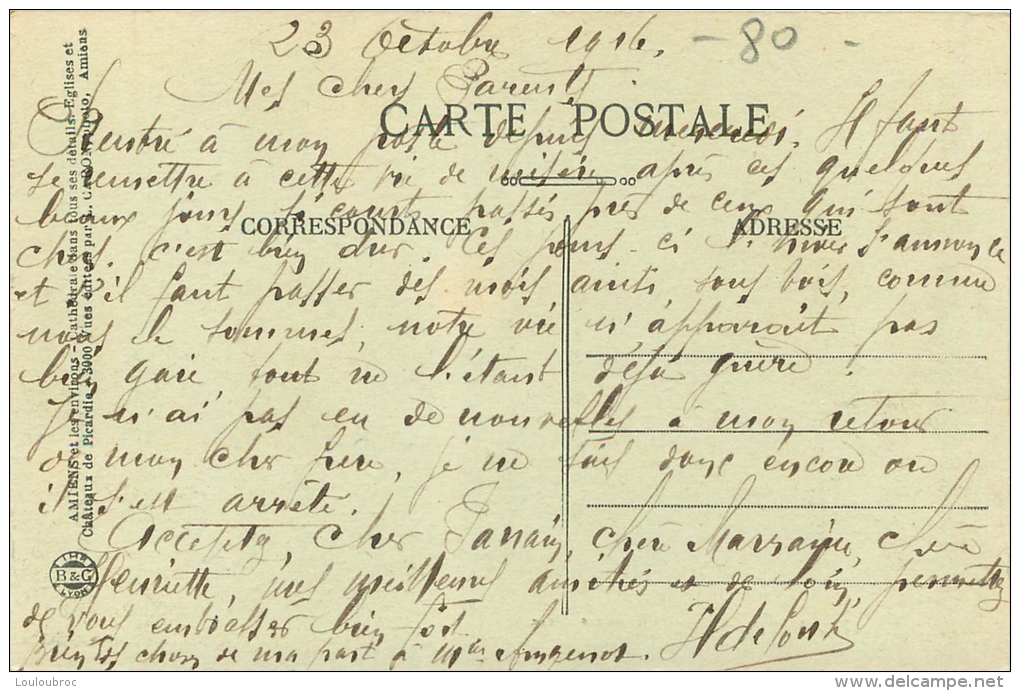 23 Octobre 1916.
- 80 -
Mes chers Parents
CARTE POSTALE
Rentré à mon poste depuis mercredi. Il faut
se remettre à cette vie de misère, après ces quelques
beaux jours si courts passés près de ceux qui sont
CORRESPONDANCE
ADRESSE
chers, c'est bien dur. Ces jours-ci l'hiver s'annonce
et s'il faut passer des mois, ainsi, sous bois, comme
nous le sommes, notre vie n'apparait pas
bien gaie, tout ne l'étant déjà guère !
Je n'ai pas eu de nouvelles à mon retour
de mon cher père, je ne sais donc encore où
il s'est arrêté.
Acceptez, cher Parrain, chère Marraine, chère
Henriette, mes meilleures amitiés et de loin, permettez
de vous embrasser bien fort
Bien des choses de ma part à
AMIENS et les environs - Cathédrale dans tous ses détails. Eglises et
Châteaux de Picardie. 3900 Vues éditées par CARON, photo, Amiens
IMP.
B & G
LYON
Louloubroc
delcampe.net